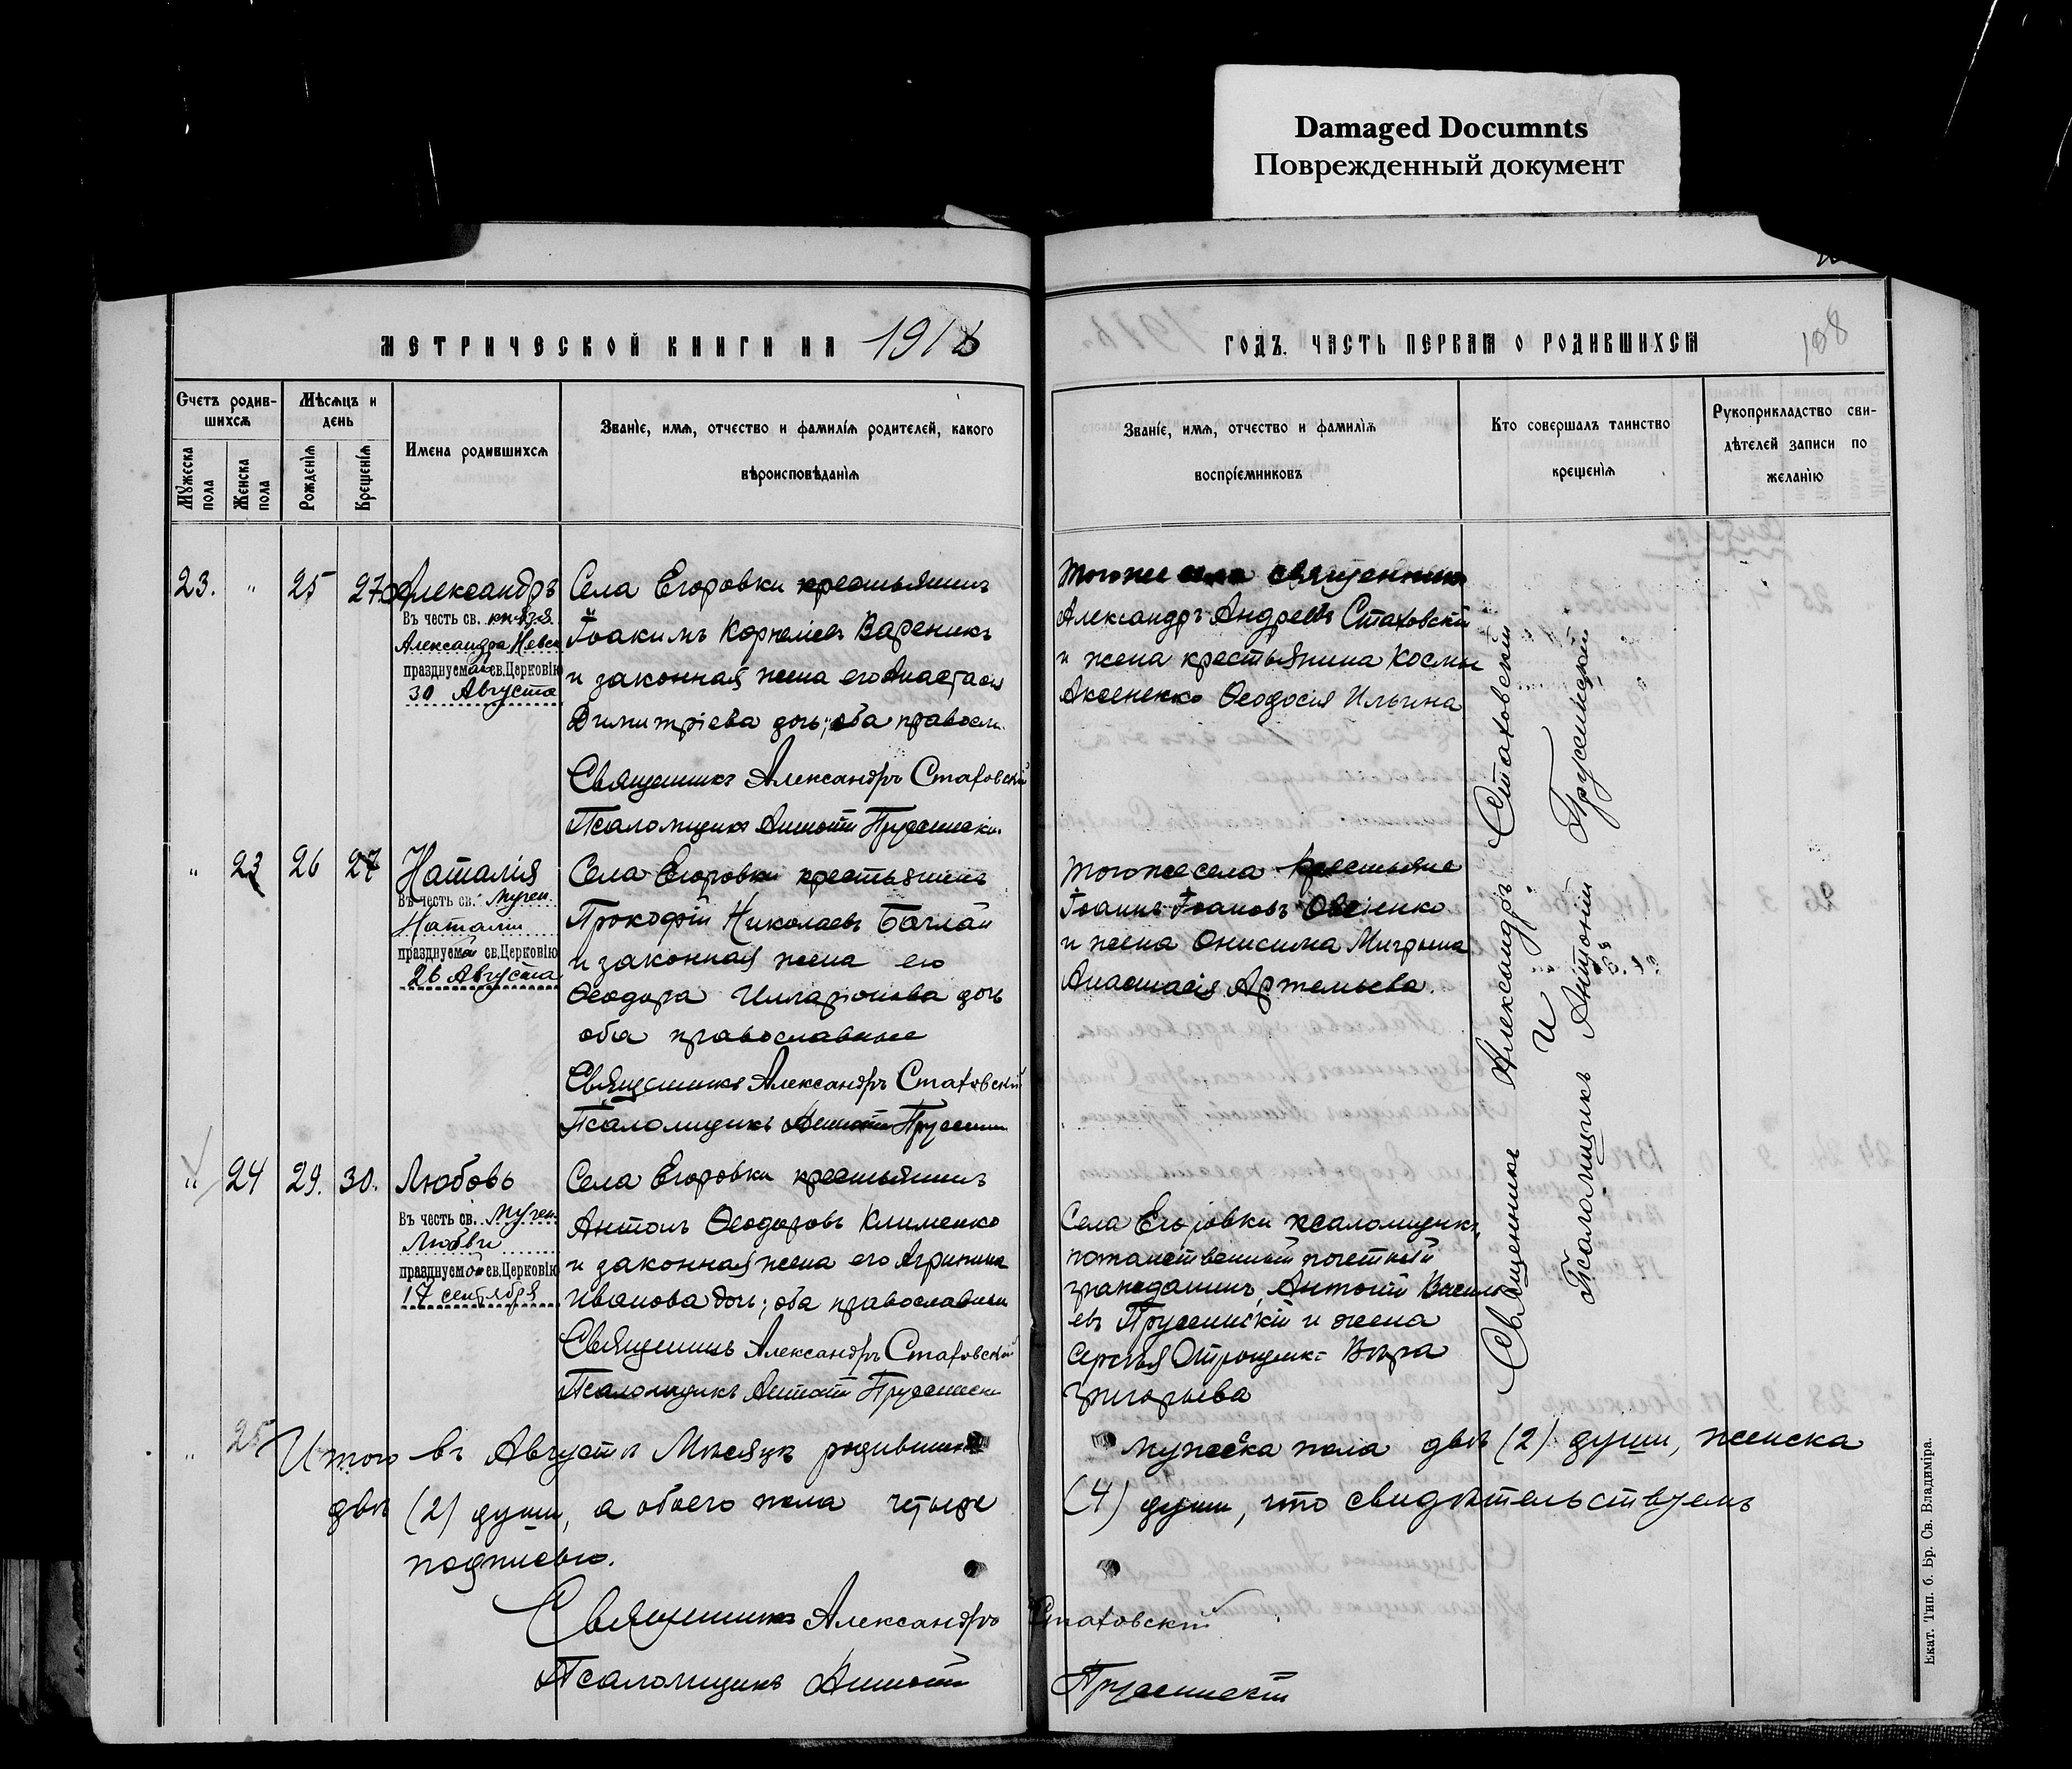 Damaged Documnts
Поврежденный документ
МЕТРИЧЕСКОЙ КНИГИ НА 1918
ГОДЪ. ЧАСТЬ ПЕРВАЯ О РОДИВШИХСЯ
108
Счетъ родив-
шихся
Мужеска пола
Женска пола
Мѣсяцъ и
день
Рожденія
Крещенія
Имена родившихся
Званіе, имя, отчество и фамилія родителей, какого
вѣроисповѣданія
Званіе, имя, отчество и фамилія
воспріемниковъ
Кто совершалъ таинство
крещенія
Рукоприкладство сви-
дѣтелей записи по
желанію
23. " 25 27. Александръ
Въ честь св. князя
Александра Невск
празднуемаго св.Церковію
30 Августа
Села Егоровки крестьянинъ
Іоакимъ Корнеліевъ Вареникъ
и законная жена его Анастасія
Димитріева дочь; оба правосл.
Священникъ Александръ Стаховскій
Псаломщикъ Антоній
Тогоже села священникъ
Александръ Андреевъ Стаховскій
и жена крестьянина Космы
Аксененко Ѳеодосія Ильина
" 23 26 27 Наталія
Въ честь св. Мучен.
Наталіи
празднуемой св.Церковію
26 Августа
Села Егоровки крестьянинъ
Прокофій Николаевъ Баглай
и законная жена его
Ѳеодора Илларіонова дочь
оба православные
Священникъ Александръ Стаховскій
Псаломщикъ Антоній
Тогоже села крестьяне
Іоаннъ Іоановъ Овсіенко
и жена Онисима Мигрына
Анастасія Артемьева.
" 24 29. 30. Любовь
Въ честь св. Мучен.
Любви
празднуемой св.Церковію
17 сентября
Села Егоровки крестьянинъ
Антонъ Ѳеодоровъ Клименко
и законная жена его Агрипина
Иванова дочь; оба православные
Священникъ Александръ Стаховскій
Псаломщикъ Антоній
Села Егоровки псаломщикъ,
потомственный почетный
гражданинъ, Антоній Василь
евъ и жена
Сергѣя Вѣра
Григорьева
Священникъ Александръ Стаховскій
и
Псаломщикъ Антоній
" 25
Итого въ Августѣ Мѣсяцѣ родившихся мужеска пола двѣ (2) души, женска
двѣ (2) души, а обоего пола четыре (4) души, что свидѣтельствуемъ
подписью.
Священникъ Александръ Стаховскій
Псаломщикъ Антоній
Екат. Тип. б. Бр. Св. Владиміра.